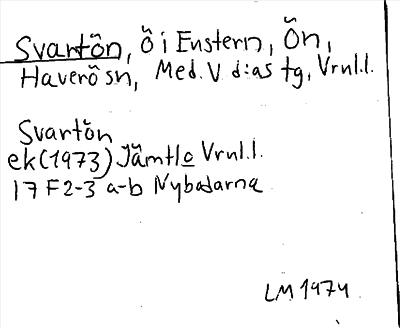 Svartön, ö i Enstern, Ön,
Haverö sn, Med. V d:as tg, Vrnl.l.
Svartön
ek (1973) Jämtlo Vrnl.l.
17 F 2-3 a-b Nybodarna
LM 1974